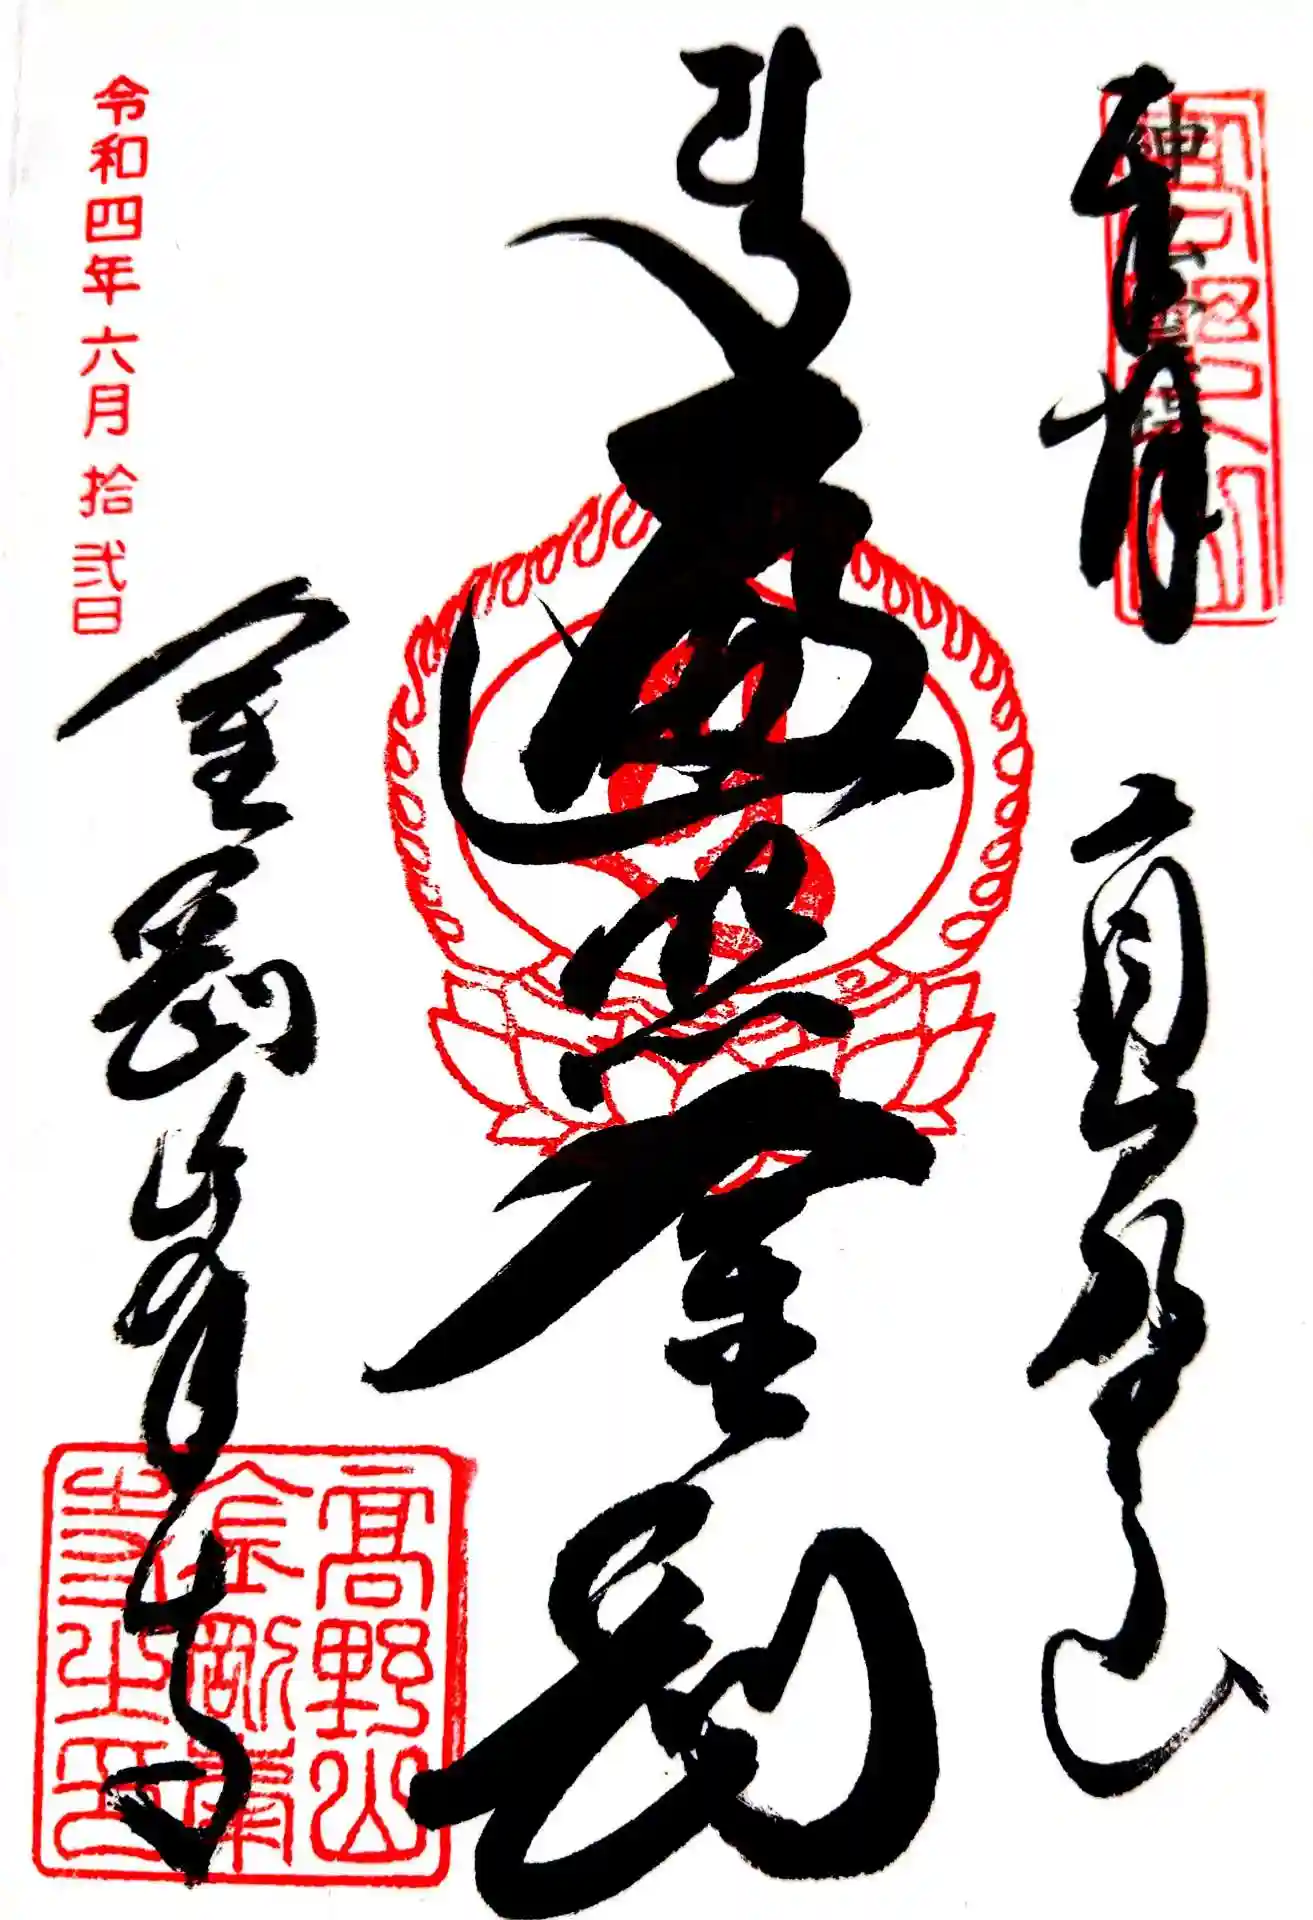 奉拝
高野山
遍照金剛
金剛峯寺
令和四年六月拾弐日
高野山
金剛峯
寺之印